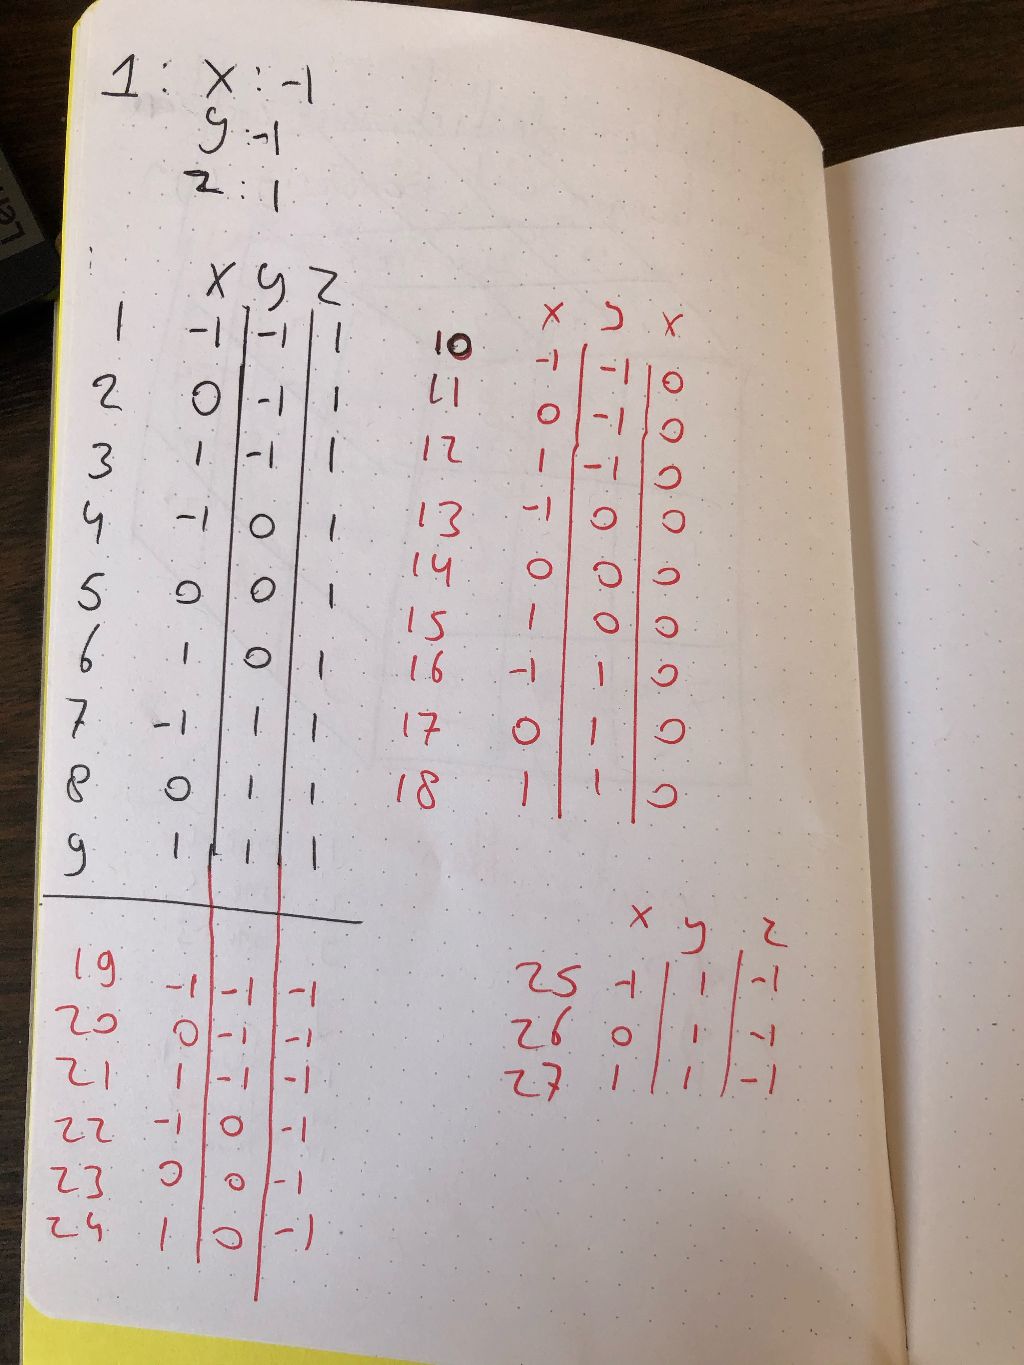 1: x: -1
y: -1
z: 1
x y z
1 -1 -1 1
2 0 -1 1
3 1 -1 1
4 -1 0 1
5 0 0 1
6 1 0 1
7 -1 1 1
8 0 1 1
9 1 1 1
x y x
10 -1 -1 0
11 0 -1 0
12 1 -1 0
13 -1 0 0
14 0 0 0
15 1 0 0
16 -1 1 0
17 0 1 0
18 1 1 0
19 -1 -1 -1
20 0 -1 -1
21 1 -1 -1
22 -1 0 -1
23 0 0 -1
24 1 0 -1
x y z
25 -1 1 -1
26 0 1 -1
27 1 1 -1
Len